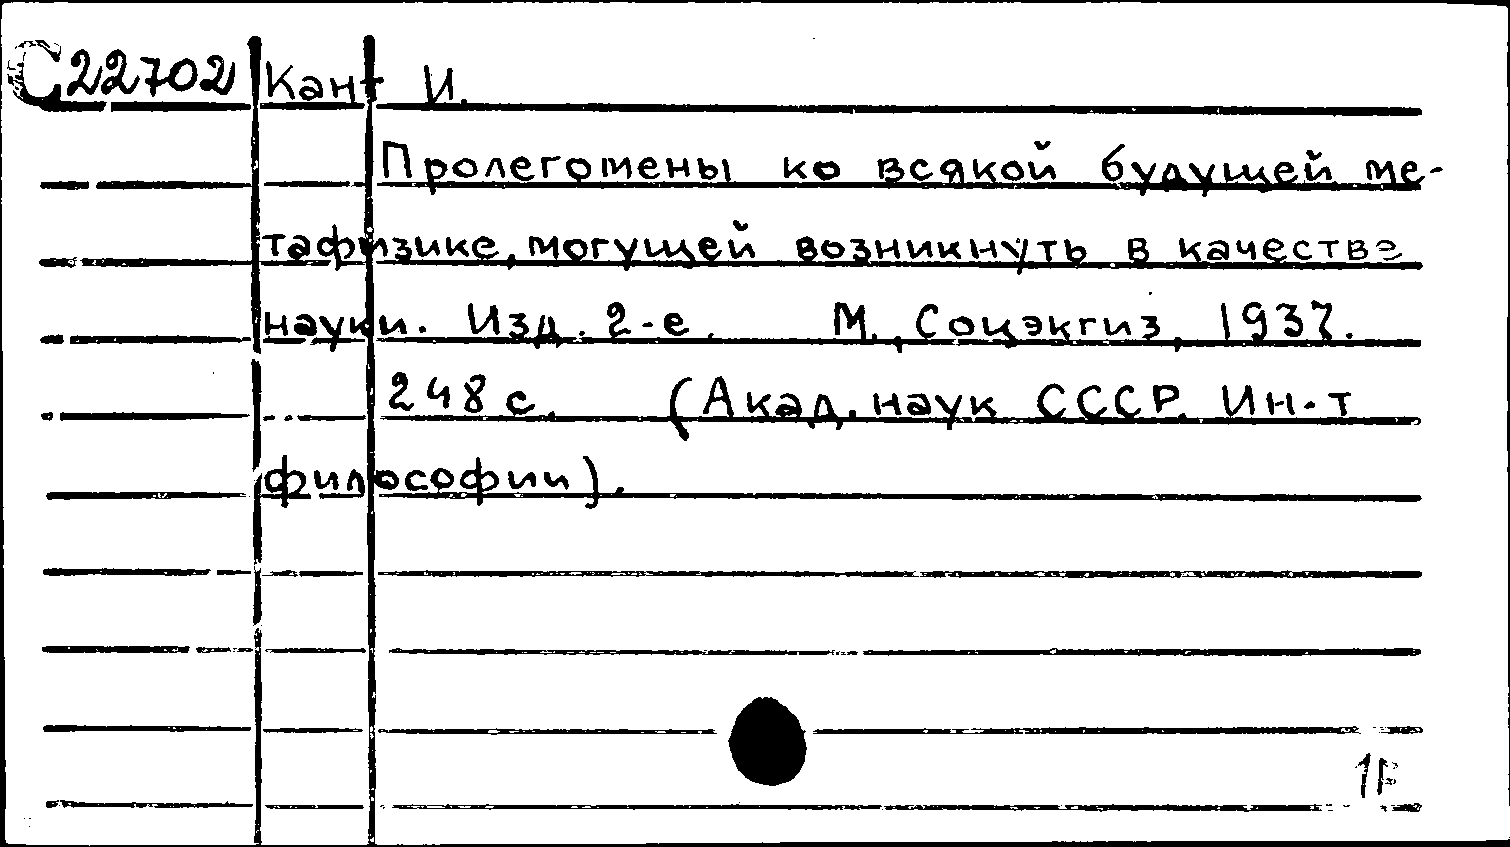 С22702 Кант И.
Пролегомены ко всякой будущей ме-
тафизике, могущей возникнуть в качестве
науки. Изд. 2-е. М., Соцэкгиз, 1937.
248 с. (Акад. наук СССР. Ин-т
философии).